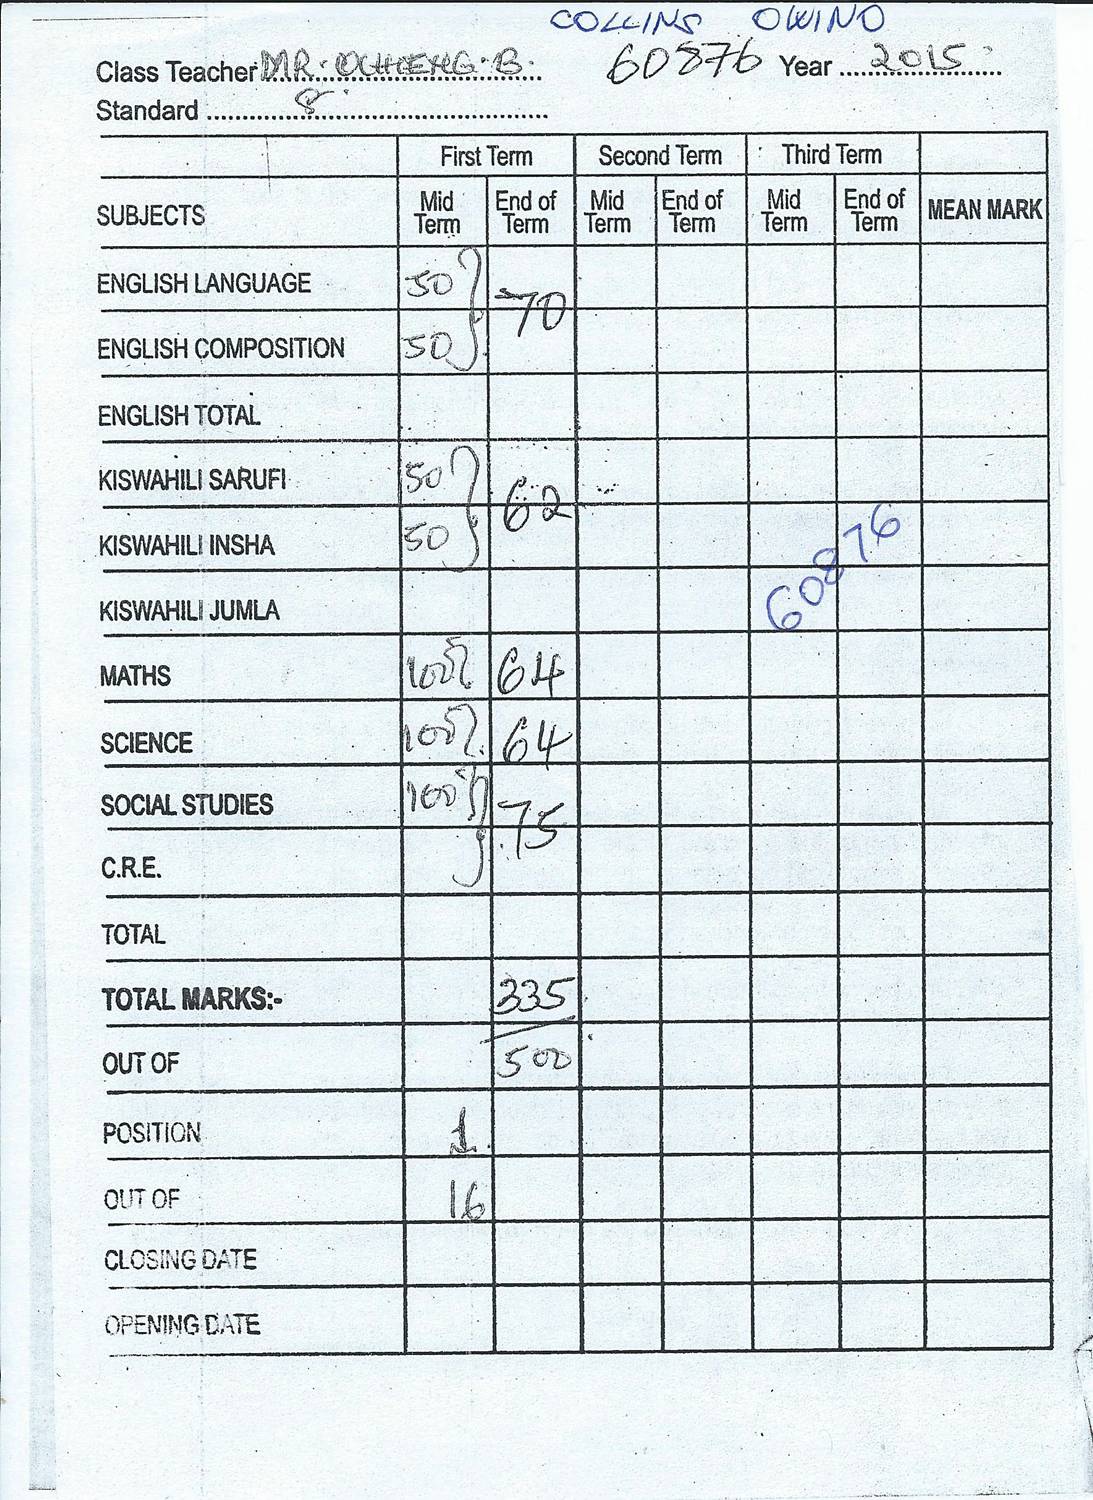 COLLINS OWINO
Class Teacher MR. OCHIENG. B. 60876 Year 2015
Standard 8
First Term Second Term Third Term
SUBJECTS Mid Term End of Term Mid Term End of Term Mid Term End of Term MEAN MARK
ENGLISH LANGUAGE 50
70
ENGLISH COMPOSITION 50
ENGLISH TOTAL
KISWAHILI SARUFI 50
62
KISWAHILI INSHA 50
60876
KISWAHILI JUMLA
MATHS 100% 64
SCIENCE 100% 64
SOCIAL STUDIES 100%
75
C.R.E.
TOTAL
TOTAL MARKS:- 335
OUT OF 500
POSITION 1
OUT OF 16
CLOSING DATE
OPENING DATE